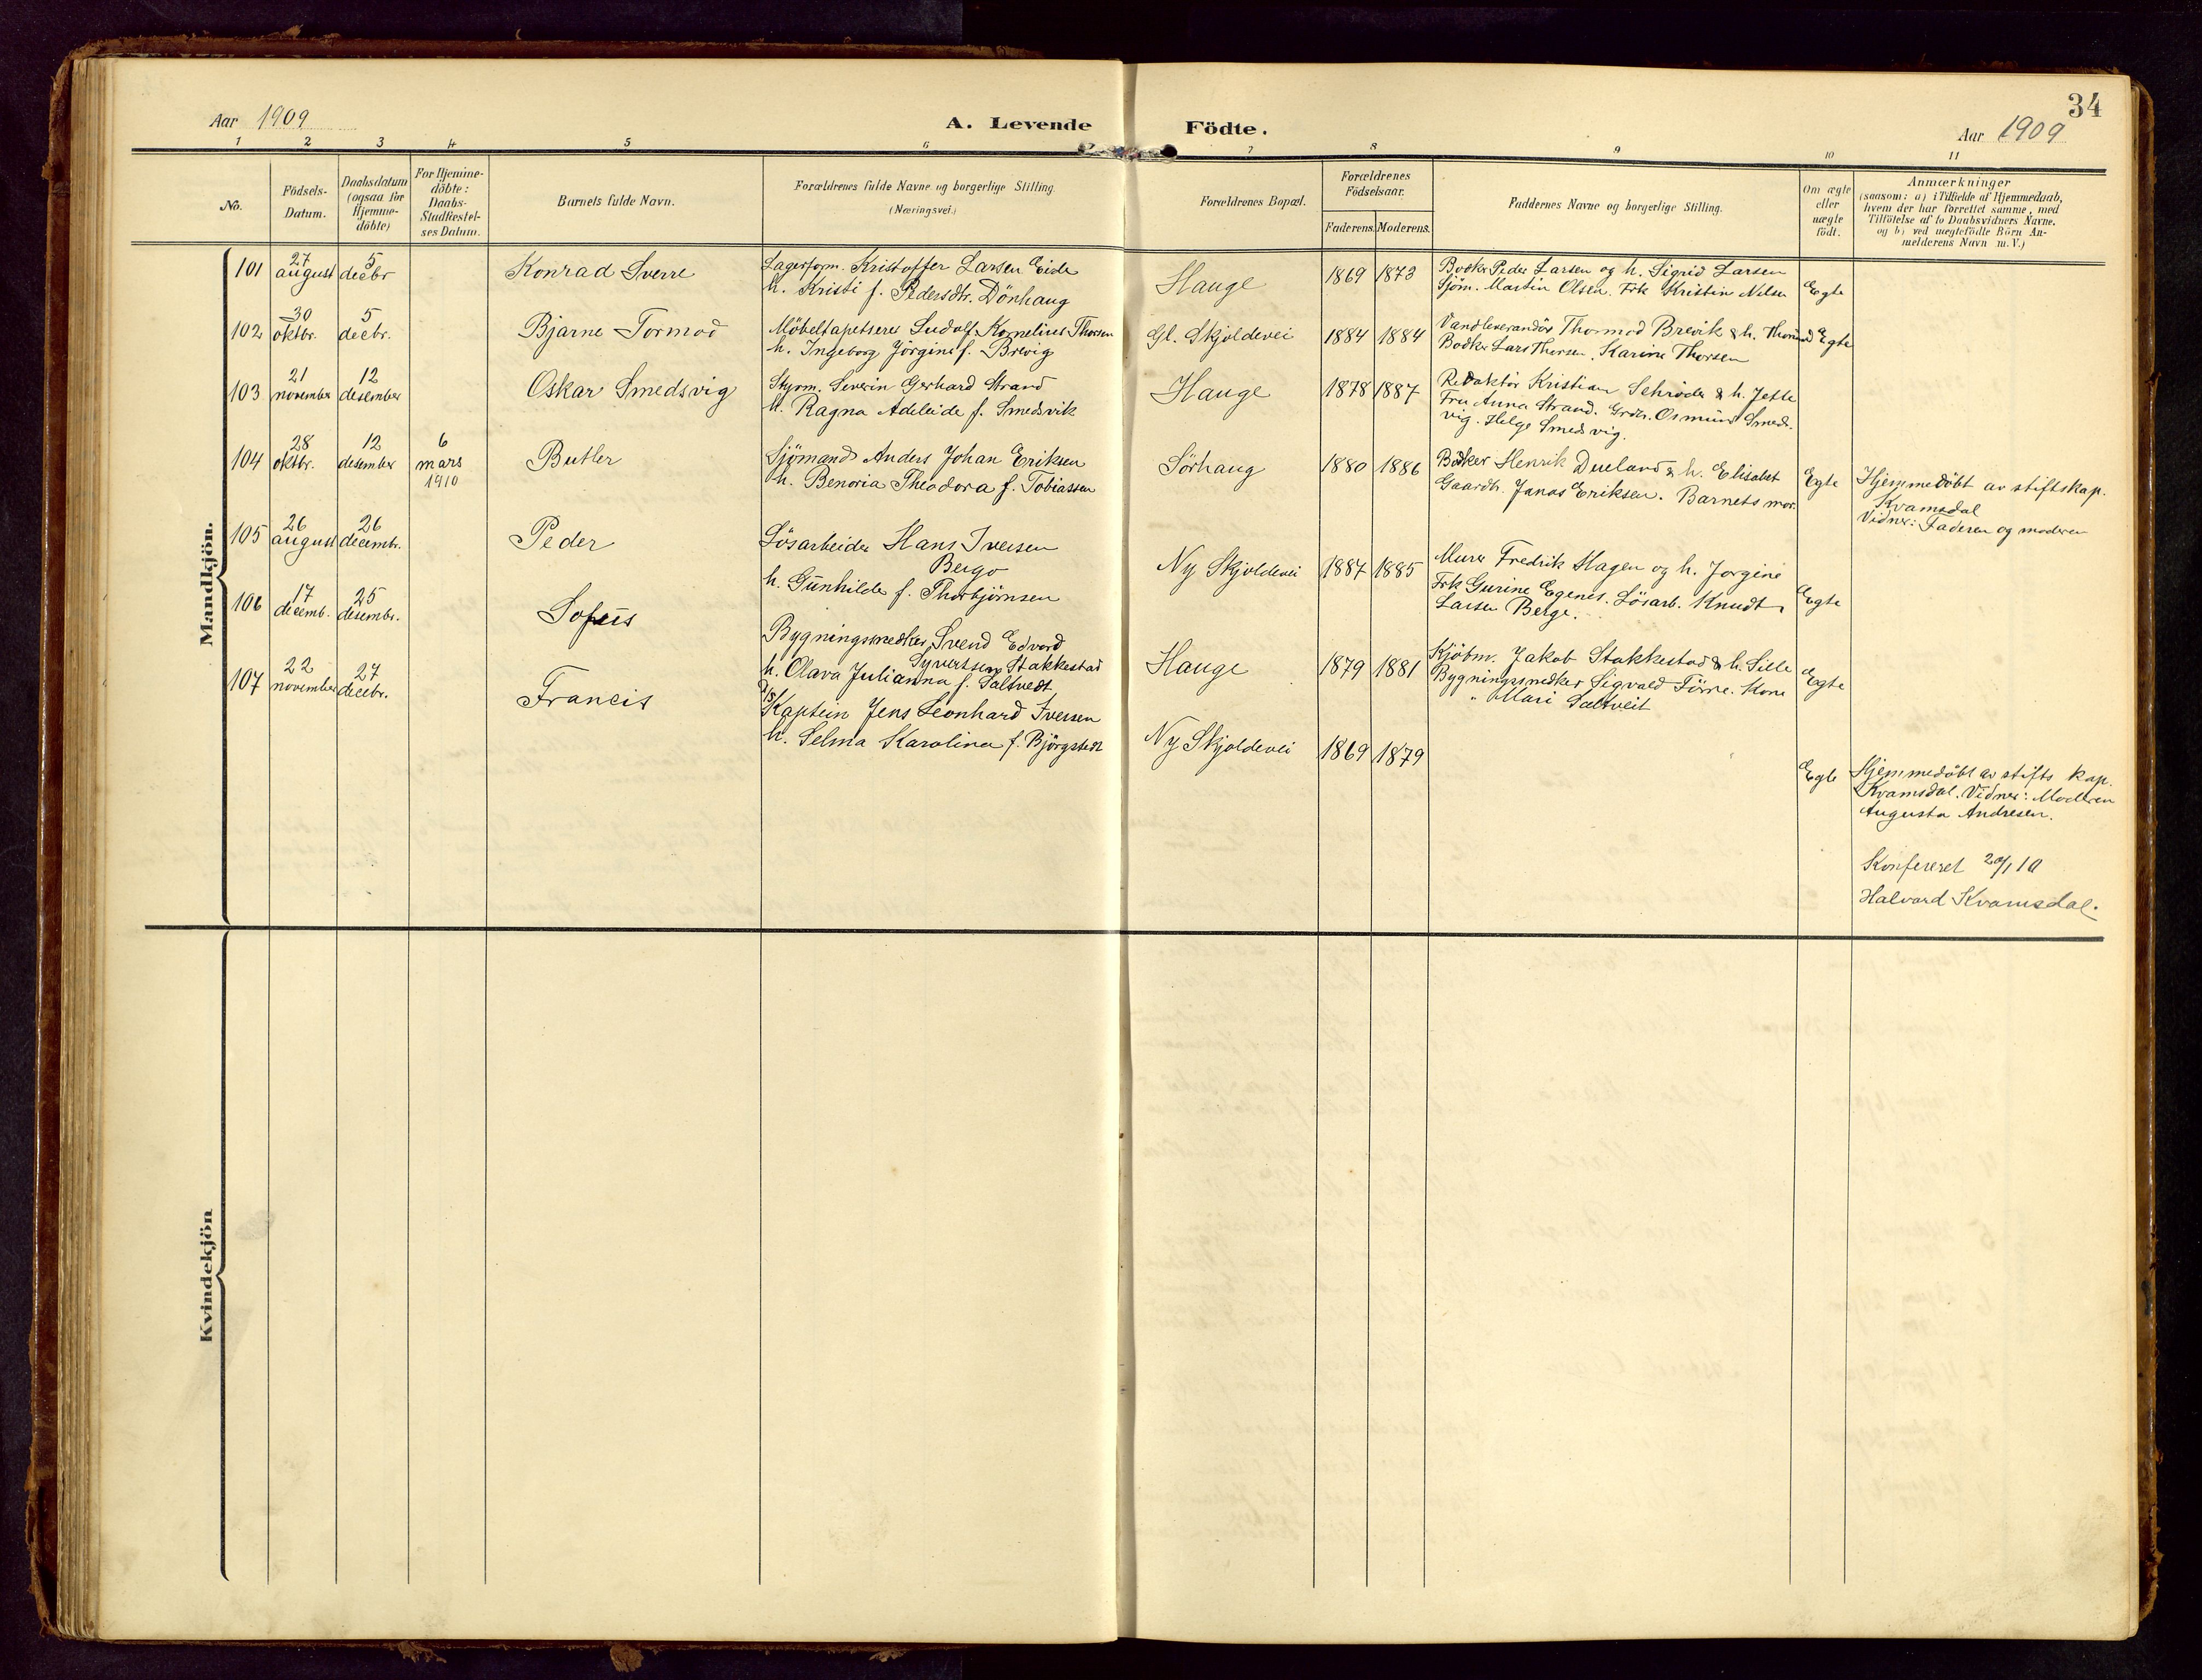 34
Aar 1909
A. Levende Födte.
Aar 1909
1 2 3 4 5 6 7 8 9 10 11
No.
Födsels-
Datum.
Daabsdatum
(ogsaa for
Hjemme-
döbte)
For Hjemme-
döbte:
Daabs-
Stadfæstel-
ses Datum.
Barnets fulde Navn.
Forældrenes fulde Navne og borgerlige Stilling.
(Næringsvei.)
Forældrenes Bopæl.
Forældrenes
Födselsaar.
Faderens. Moderens.
Faddernes Navne og borgerlige Stilling.
Om ægte
eller
uægte
födt.
Anmærkninger
(saasom: a) i Tilfælde af Hjemmedaab,
hvem der har forrettet samme, med
Tilföielse af to Daabsvidners Navne.
og b) ved uegtefödte Börn An-
melderens Navn m. V.)
Mandkjön.
101
27
august
5
decbr
Konrad Sverre
Lagerform. Kristoffer Larsen Eide
h. Kristi f. Pedersdtr. Dönhaug
Hauge
1869 1873
Bödker Peder Larsen og h. Sigrid Larsen
Sjöm. Martin Olsen. Frk Kristin Nilsen
Egte
102
30
oktbr.
5
decbr.
Bjarne Tormod
Möbeltapetserer Ludolf Kornelius Thorsen
h. Ingeborg Jörgine f. Brevig
Gl. Skjoldevei
1884 1884
Vandleverandör Thormod Brevik & h. Thorund
Bödker Lars Thorsen. Karine Thorsen
Egte
103
21
november
12
desember
Oskar Smedsvig
Styrm. Severin Gerhard Strand
h. Ragna Adeleide f. Smedsvik
Hauge
1878 1887
Redaktör Kristian Schröder & h. Jette
Fru Anna Strand. Grdbr. Osmund Smeds-
vig. Helge Smedsvig.
104
28
oktbr.
12
desember
6
mars
1910
Butler
Sjömand Anders Johan Eriksen
h. Benoria Theodora f. Tobiassen
Sörhaug
1880 1886
Bödker Henrik Dueland & h. Elisabet
Gaardb. Jonas Eriksen. Barnets mor.
Egte
Hjemmedöbt av stiftskap.
Kvamsdal
Vidner: Faderen og moderen
105
26
august
26
decembr.
Peder
Lösarbeider Hans Iversen
Berge
h. Gunhilde f. Thorbjörnsen
Ny Skjoldevei
1887 1885
Murer Fredrik Hagen og h. Jorgine
Frk Gurine Egenes. Lösarb. Knudt
Larsen Berge.
Egte
106
17
decemb.
25
desembr.
Sofus
Bygningssnedker Svend Edvard
Syvertsen Stakkestad
h. Olava Julianna f. Saltvedt
Hauge
1879 1881
Kjöbm. Jakob Stakkestad & h. Sille
Bygningssnedker Sigvald Törre. Kone
" Mari Saltveit
Egte
107
22
november
27
decbr.
Francis
Kaptein Jens Leonhard Iversen
h. Selma Karolina f. Björgstedt
Ny Skjoldevei
1869 1879
Egte
Hjemmedöbt av stifts kap.
Kvamsdal. Vidner: Moderen
Augusta Andresen.
Konfereret 20/1 10
Halvard Kvamsdal.
Kvindekjön